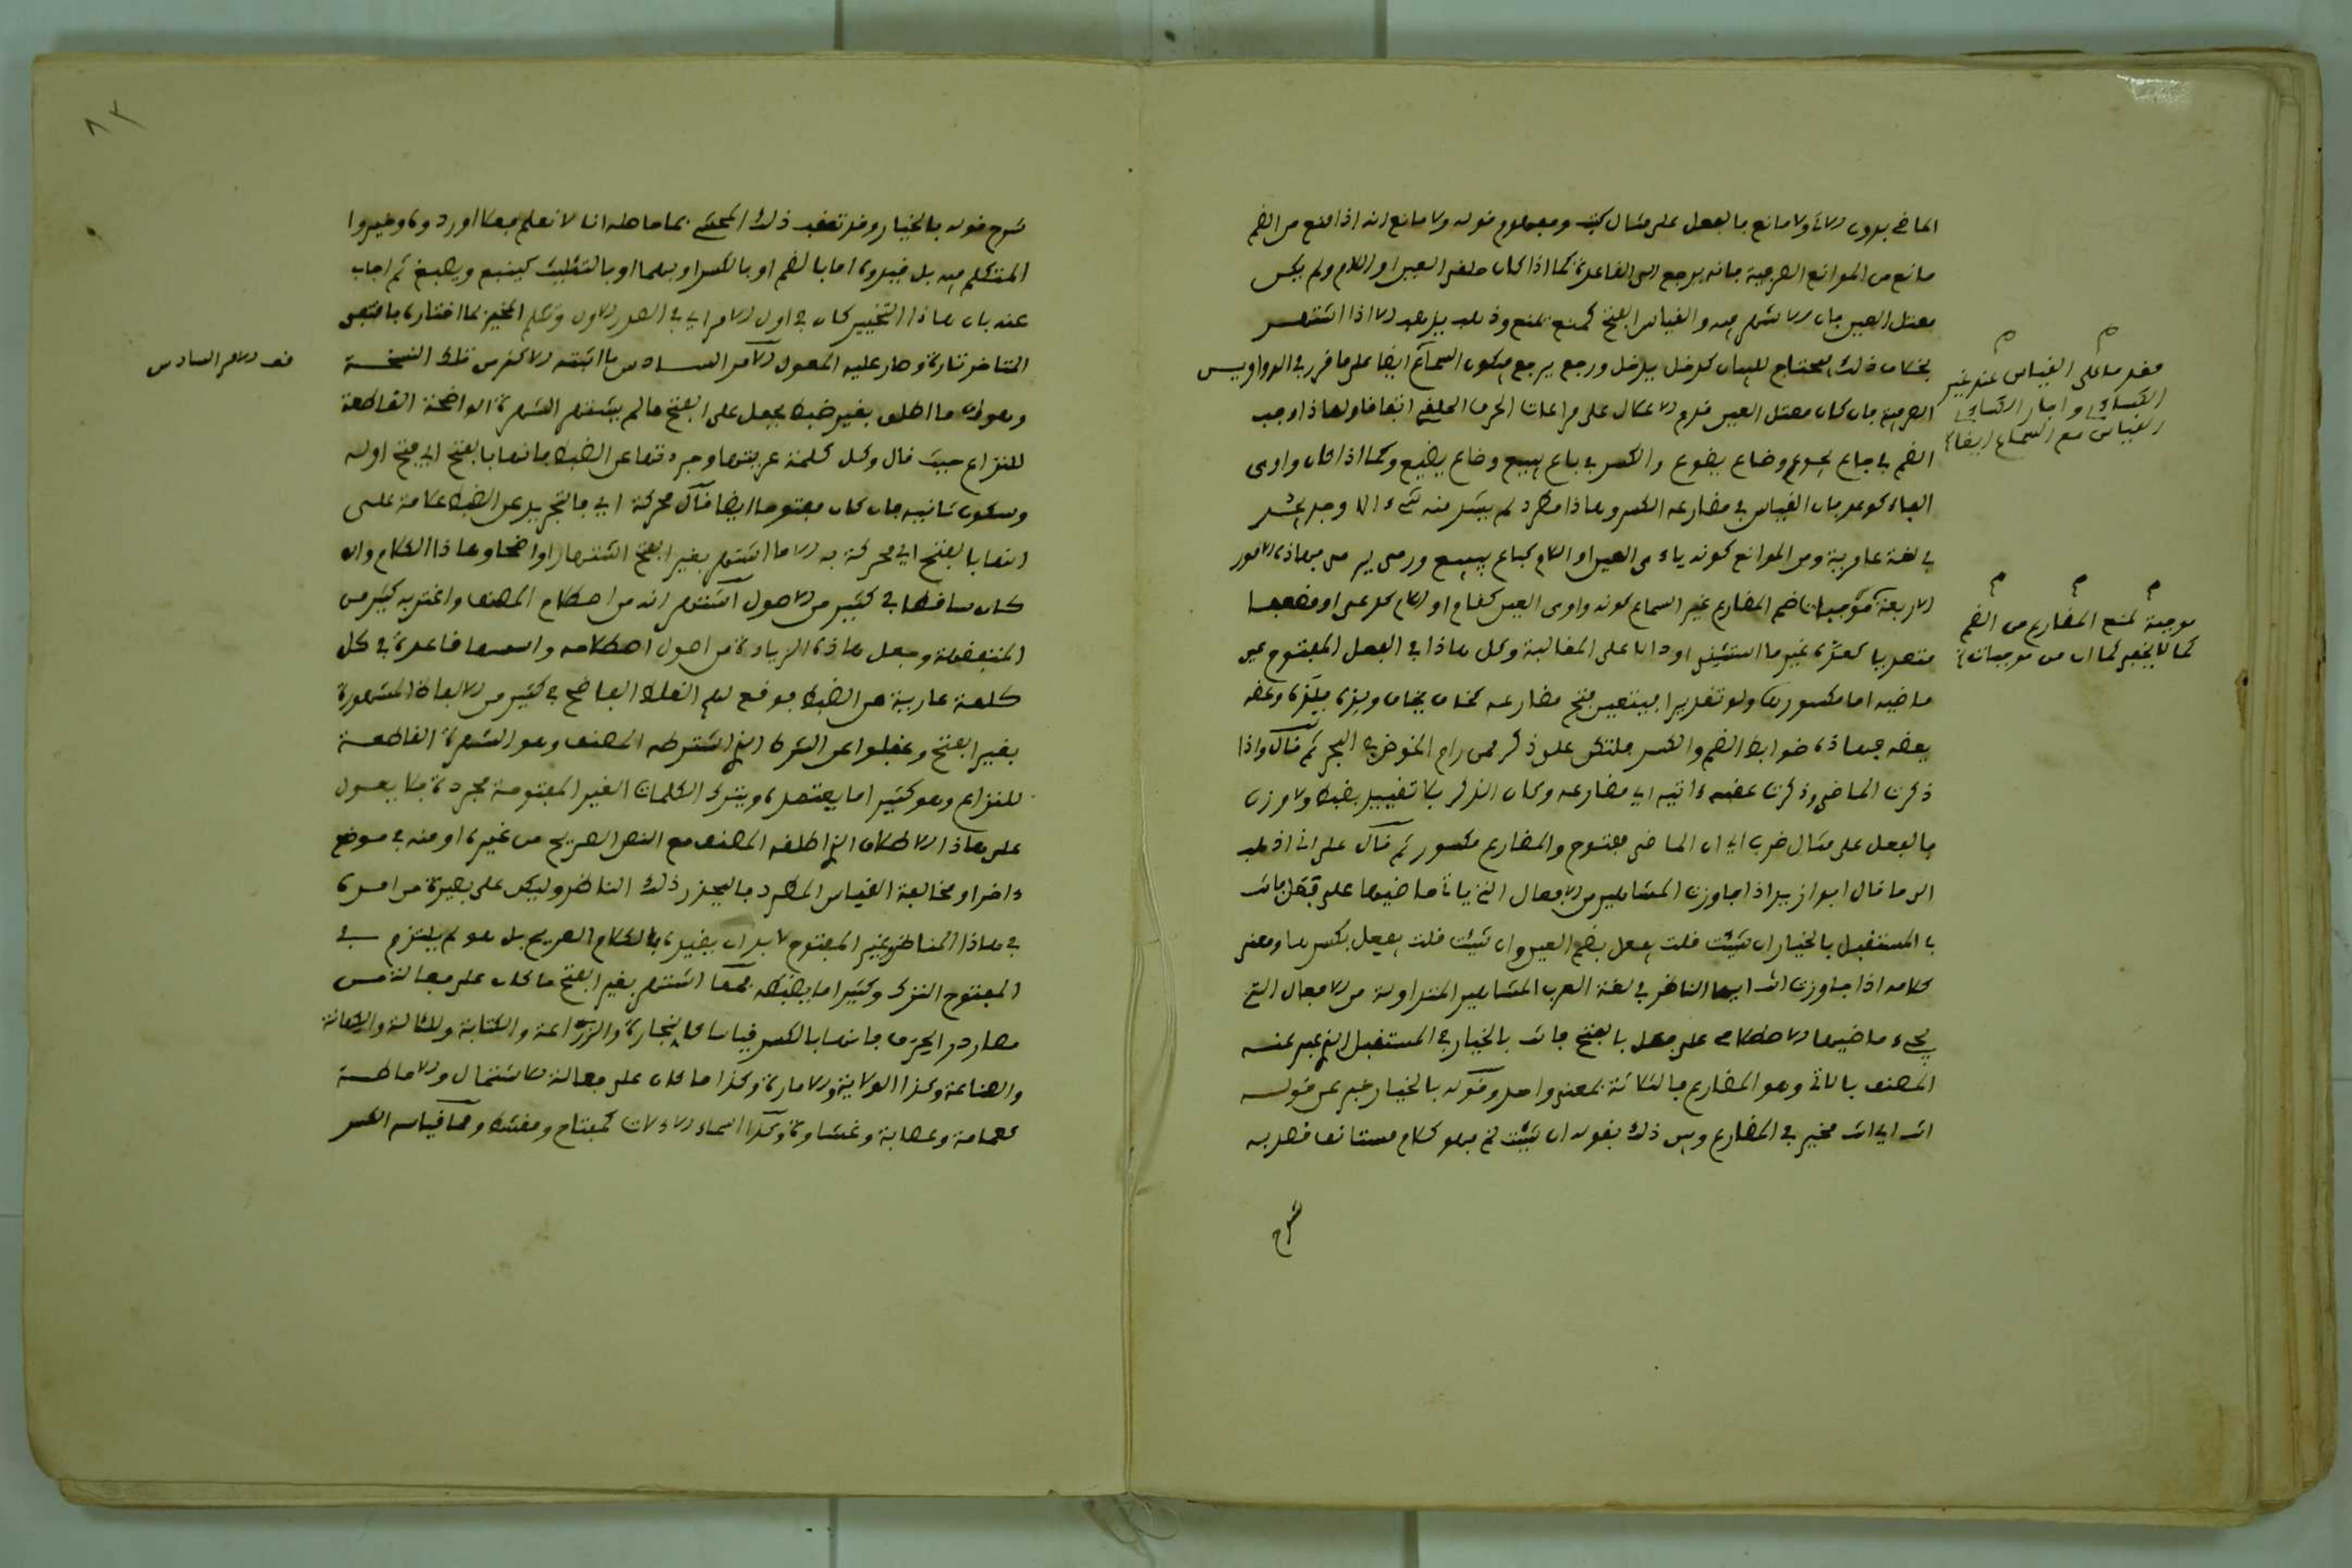 الماضي بدون الاتى ولا مانع فالفعل على مثال كتب ومفهوم قوله ولا مانع انه اذا منع من الضم
مانع من الموانع الصرفية فانه يرجع الى القاعدة كما اذا كان حلقي العين او اللام ولم يكن
معتل العين فان لم يشتهر فيه والقياس الفتح كمنع يمنع وذهب يذهب الا اذا اشتهر
بخلاف ذلك فيحتاج للبيان كدخل يدخل ورجع يرجع فيكون السماع ايضا على ما قرر في الدواوين
فقدم على القياس عند غير
الكسائي واجاز الكسائي
القياس مع السماع ايضا
الصرفية فان كان معتل العين قدم الاعلال على مراعات الحرف الحلقي اتفاقا ولهذا وجب
الضم في جاع يجوع وضاع يضوع والكسر في باع يبيع وضاع يضيع وكما اذا كان واوى
الفاء كوعد فان القياس في مضارعه الكسر وهذا مطرد لم يشذ منه شيء الا وجد يجد
في لغة عامرية ومن الموانع كونه ياءى العين او اللام كباع يبيع ورمى يرمى فهذه الامور
الاربعة موجبات ضم المضارع غير السماع كونه واوى العين كقام او اللام كدعى او مضعفا
موجبة لمنع المضارع من الضم
كما لا يخفى كما ان من موجبات
متعديا كعده غير ما استثنى او دالا على المغالبة وكل هاذا في الفعل المفتوح عين
ماضيه اما مكسورها ولو تقديرا فيتعين فتح مضارعه كخاف يخاف ولذه يلذه وعضه
يعضه فهاذه ضوابط الضم والكسر فلتكن على ذكر ممن رام الخوض في البحر ثم قال واذا
ذكرت الماضي وذكرت عقبه ءاتيه اي مضارعه وكان الذكر بلا تقييد بضبط ولا وزن
فالفعل على مثال ضرب اي ان الماضي مفتوح والمضارع مكسور ثم قال على اني اذهب
الى ما قال ابو زيد اذا جاوزت المشاهير من الافعال التي ياتي ماضيها على فعل فانت
في المستقبل بالخيار ان شئت قلت يفعل بضم العين وان شئت قلت يفعل بكسرها ومعنى
كلامه اذا جاوزت انت ايها الناظر في لغة العرب المشاهير المتداولة من الافعال التي
يجيء ماضيها الاصطلاحي على فعل بالفتح فانت بالخيار في المستقبل الذي عبر عنه
المصنف بالاتي وهو المضارع فالثلاثة بمعنى واحد وقوله بالخيار خبر عن قوله
انت اي انت مخير في المضارع وبين ذلك بقوله ان شئت الخ فهو كلام مستانف قصد به
شرح
٨٢
شرح قوله بالخيار وقد تعقب ذلك المحشي بما حاصله انا لا نعلم فعلا اوردوه وخيروا
المتكلم فيه بل قيدوه اما بالضم او بالكسر او بهما او بالتثليث كينبع ويصبغ ثم اجاب
عنه بان هاذا التخيير كان في اول الامر اي في الصدر الاول وتكلم المخير بما اختاره فاقتفى
المتاخر تاره وصار عليه المعول الامر السادس ما اثبته الاكثر من تلك النسخة
قف الامر السادس
وهو ان ما اطلق بغير ضبط يحمل على الفتح ما لم يشتهر الشهرة الواضحة القاطعة
للنزاع حيث قال وكل كلمة عريتها وجردتها عن الضبط فانها بالفتح اي فتح اوله
وسكون ثانيه فان كان مفتوحا ايضا قال محركة اي فالتجريد عن الضبط علامة على
انها بالفتح اي محركة به الا ما اشتهر بغير الفتح اشتهارا واضحا وهاذا الكلام وان
كان ساقطا في كثير من الاصول اشتهر انه من اصطلاح المصنف واغتر به كثير من
المتفقهة وجعل هاذه الزيادة من اصول اصطلاحه واسسها قاعدة في كل
كلمة عارية من الضبط فوقع لهم الغلط الفاضح في كثير من الالفاظ المشهورة
بغير الفتح وغفلوا عن الشرط الذي اشترطه المصنف وهو الشهرة القاطعة
للنزاع وهو كثيرا ما يعتمده ويترك الكلمات الغير المفتوحة مجردة فلا يعول
على هاذا الاطلاق الذي اطلقه المصنف مع النص الصريح من غيره او منه في موضع
ءاخر او مخالفة القياس المطرد فاليحذر ذلك الناظر وليكن على بصيرة من امره
في هاذا المناط وغير المفتوح لا بد ان يقيده بالكلام الصريح بل هو لم يلتزم في
المفتوح الترك وكثيرا ما يضبطه فمما اشتهر بغير الفتح ما كان على فعالة من
مصادر الحرف فانها بالكسر قياسا كالنجارة والزراعة والكتابة والدلالة والكهانة
والصناعة وكذا الولاية والامارة وكذا ما كان على فعالة للاشتمال والاحاطة
كعمامة وعصابة وغشاوة وكذا اسماء الالات كمفتاح ومفتح ومما قياسه الكسر